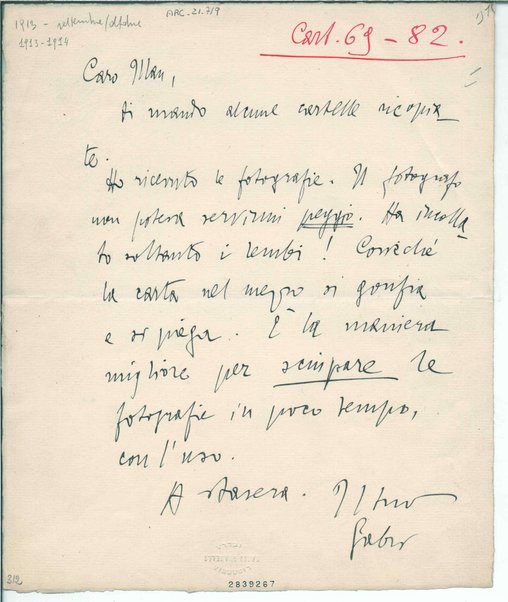 1913 - settembre/ottobre
1913-1914
ARC.21.7/9
Cart. 69 - 82.
Caro Man,
ti mando alcune cartelle ricopia
te.
Ho ricevuto le fotografie. Il fotografo
non poteva servirmi peggio. Ha incolla
to soltanto i lembi! Cosicché
la carta nel mezzo si gonfia
e si piega. È la maniera
migliore per sciupare le
fotografie in poco tempo,
con l'uso.
A stasera. Il tuo
Gabri
312
2839267